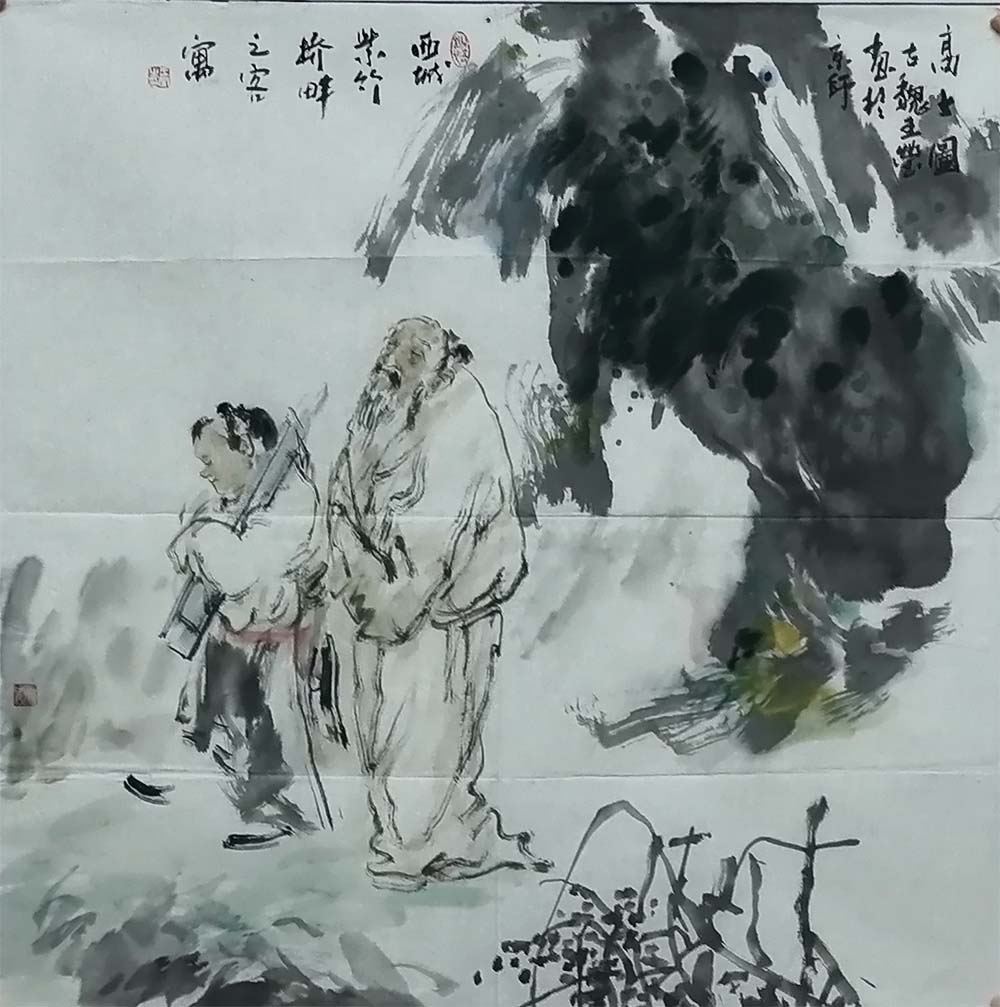 高士圖
古魏王
畫於
京師
西城
紫竹
桥畔
之客
寓